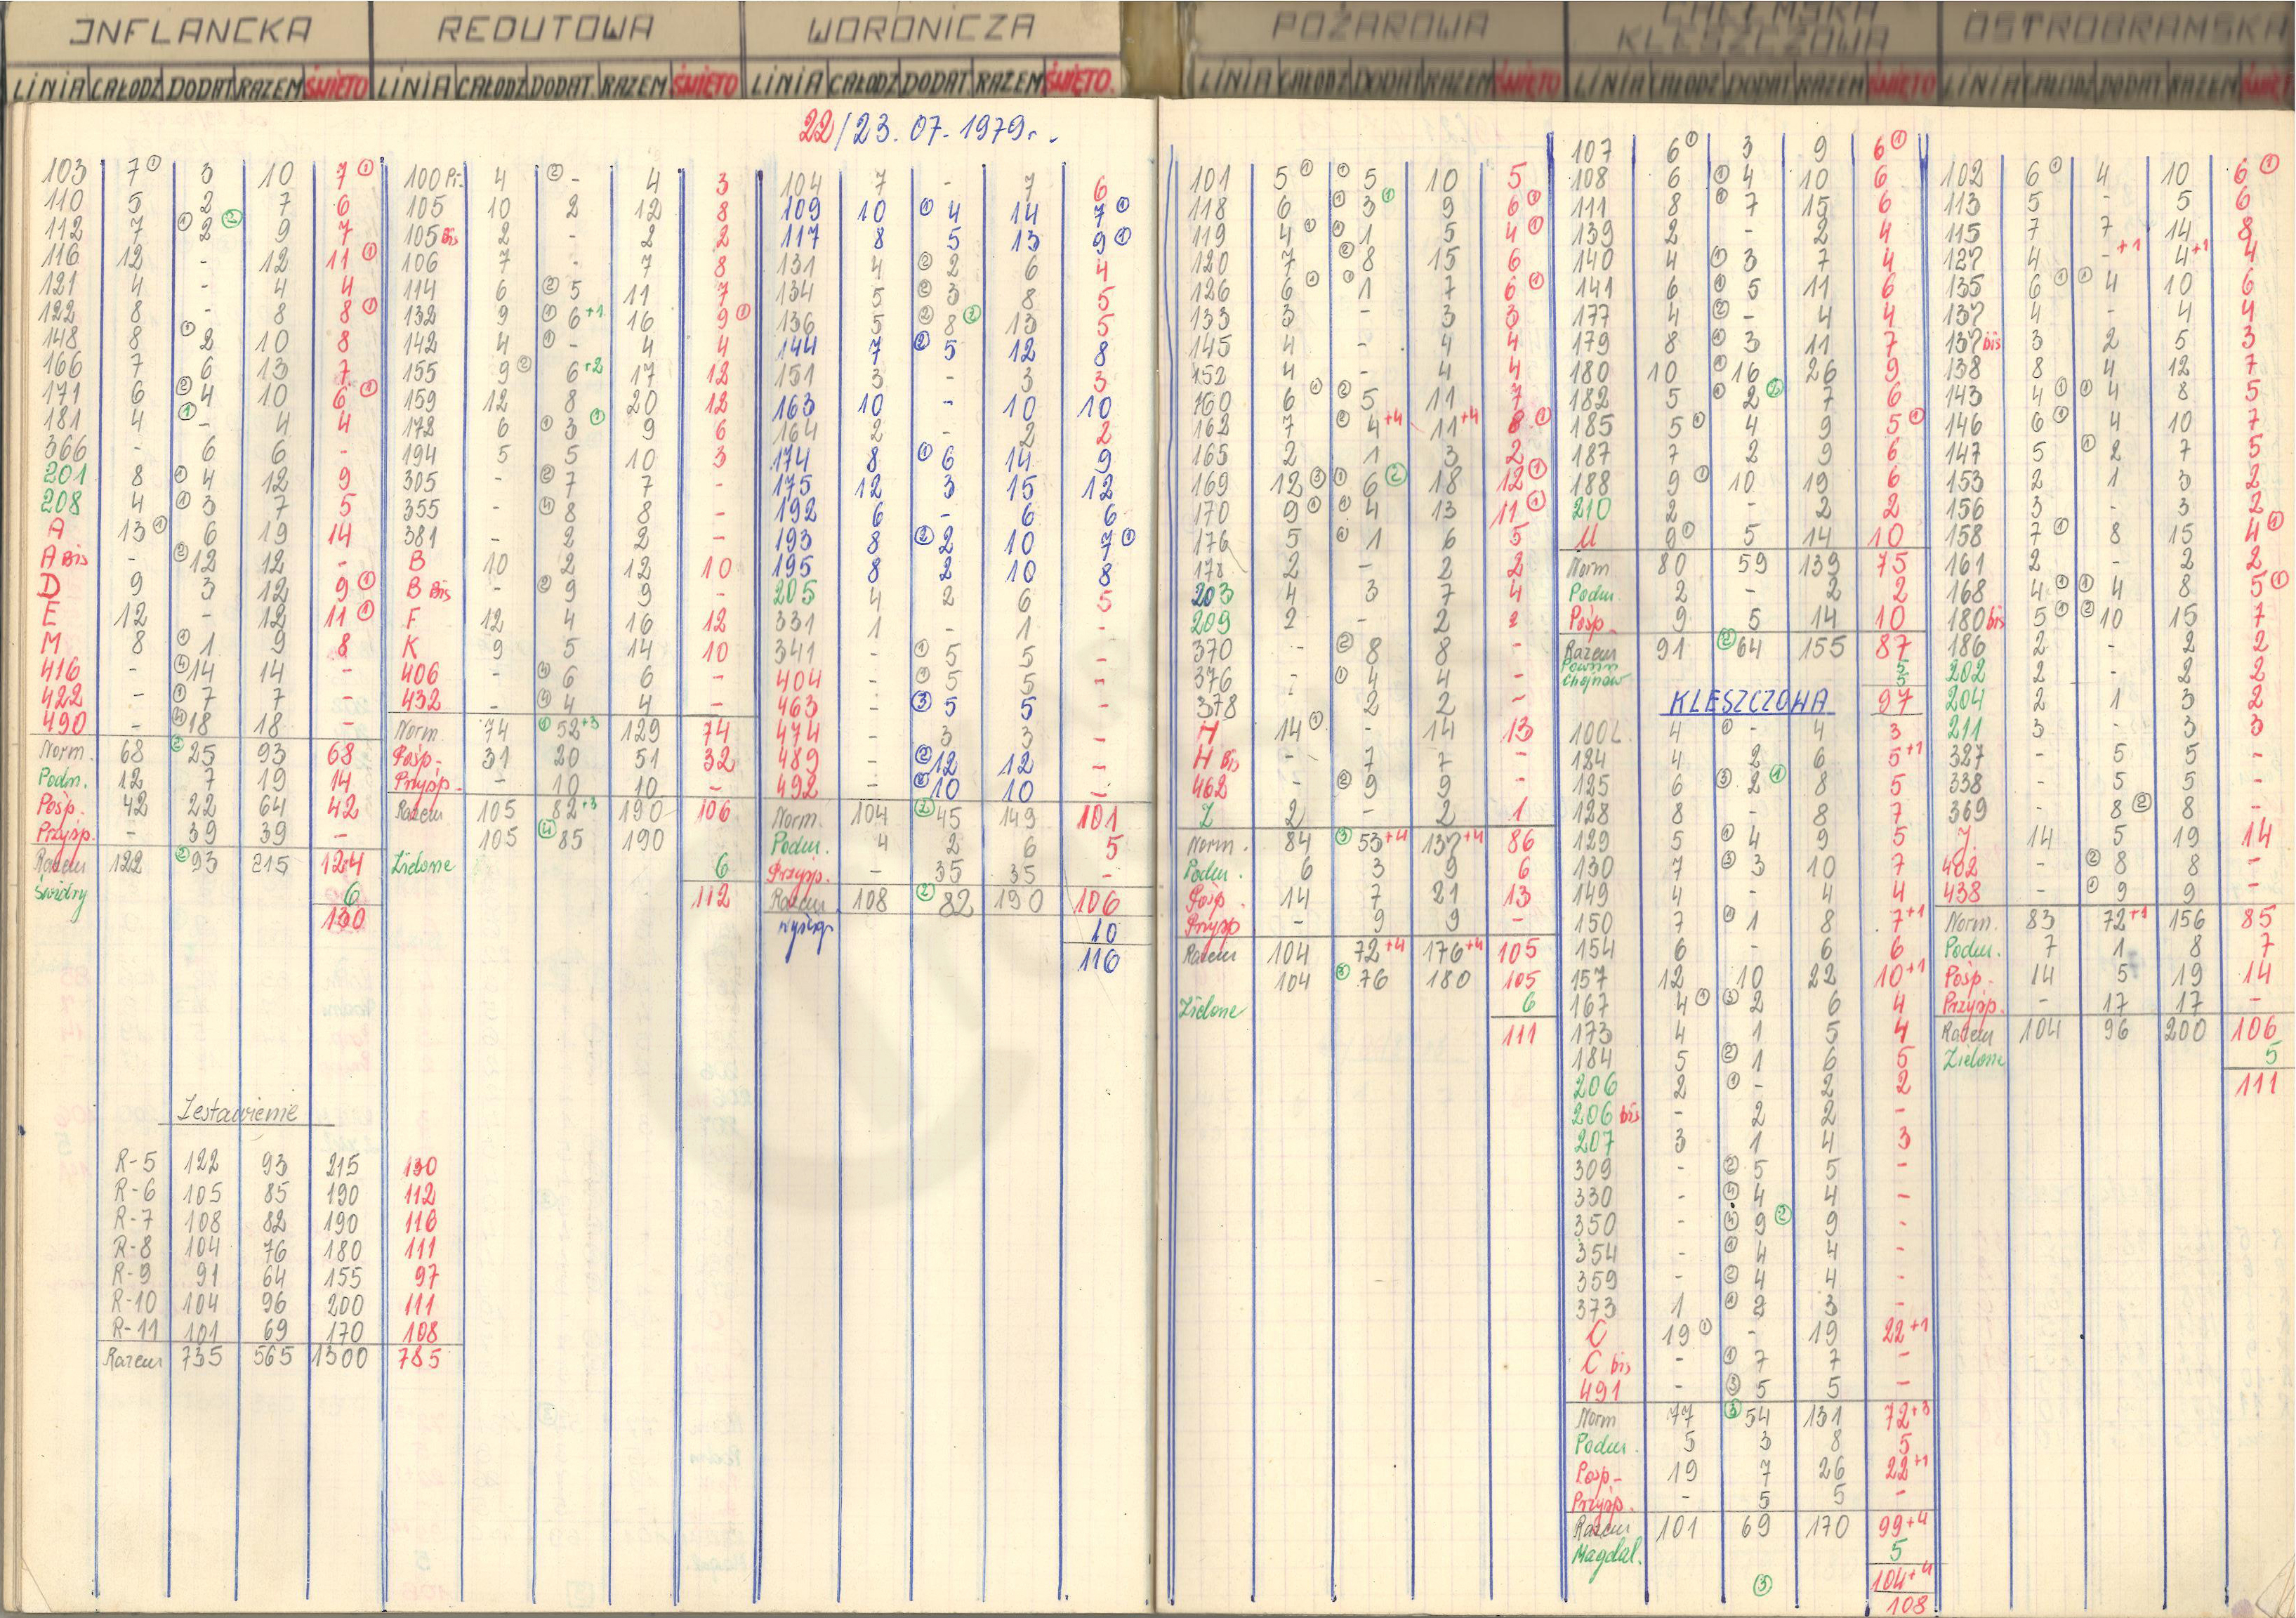 INFLANCKA
LINIA CAŁODZ DODAT RAZEM ŚWIĘTO
103 7① 3 10 7①
110 5 2 7 6
112 7 ① 2 ② 9 7
116 12 - 12 11①
121 4 - 4 4
122 8 - 8 8①
148 8 ① 2 10 8
166 7 6 13 7
171 6 ② 4 10 6①
181 4 ① - 4 4
366 - 6 6 -
201 8 ① 4 12 9
208 4 ① 3 7 5
A 13① 6 19 14
A Bis - ② 12 12 -
D 9 3 12 9①
E 12 - 12 11①
M 8 ① 1 9 8
416 - ④ 14 14 -
422 - ① 7 7 -
490 - ④ 18 18 -
Norm. 68 ② 25 93 68
Podm. 12 7 19 14
Pośp. 42 22 64 42
Przysp. - 39 39 -
Razem 122 ② 93 215 124
Świdry 6
130
Zestawienie
R-5 122 93 215 130
R-6 105 85 190 112
R-7 108 82 190 116
R-8 104 76 180 111
R-9 91 64 155 97
R-10 104 96 200 111
R-11 101 69 170 108
Razem 735 565 1300 785
REDUTOWA
LINIA CAŁODZ DODAT. RAZEM ŚWIĘTO
100 Pr. 4 ② - 4 3
105 10 2 12 8
105 Bis 2 - 2 2
106 7 - 7 8
114 6 ② 5 11 7
132 9 ① 6+1 16 9①
142 4 ① - 4 4
155 9② 6+2 17 12
159 12 8 20 12
172 6 ① 3 ① 9 6
194 5 5 10 3
305 - ② 7 7 -
355 - ④ 8 8 -
381 - 2 2 -
B 10 2 12 10
B Bis - ② 9 9 -
F 12 4 16 12
K 9 5 14 10
406 - ④ 6 6 -
432 - ④ 4 4 -
Norm 74 ① 52+3 129 74
Pośp. 31 20 51 32
Przysp. - 10 10 -
Razem 105 82+3 190 106
105 ④ 85 190
Zielone 6
112
WORONICZA
LINIA CAŁODZ DODAT RAZEM ŚWIĘTO.
22/23.07.1979r.
104 7 - 7 6
109 10 ① 4 14 7①
117 8 5 13 9①
131 4 ② 2 6 4
134 5 ② 3 8 5
136 5 ② 8 ② 13 5
144 7 ② 5 12 8
151 3 - 3 3
163 10 - 10 10
164 2 - 2 2
174 8 ① 6 14 9
175 12 3 15 12
192 6 - 6 6
193 8 ② 2 10 7①
195 8 2 10 8
205 4 2 6 5
331 1 - 1 -
341 - ① 5 5 -
404 - ① 5 5 -
463 - ③ 5 5 -
474 - 3 3 -
489 - ② 12 12 -
492 - ② 10 10 -
Norm. 104 ② 45 149 101
Podm. 4 2 6 5
Przysp. - 35 35 -
Razem 108 ② 82 190 106
wyścigi 10
116
POŻAROWA
LINIA CAŁODZ DODAT RAZEM ŚWIĘTO
101 5① ① 5 10 5
118 6 ① 3 ① 9 6①
119 4① ① 1 5 4①
120 7 ② 8 15 6
126 6① ① 1 7 6①
133 3 - 3 3
145 4 - 4 4
152 4 - 4 4
160 6① ② 5 11 7
162 7 ② 4+4 11+4 8①
165 2 1 3 2
169 12③ ① 6 ② 18 12①
170 9① ① 4 13 11①
176 5 ① 1 6 5
178 2 - 2 2
203 4 3 7 4
209 2 - 2 2
370 - ② 8 8 -
376 - ① 4 4 -
378 2 2 -
H 14① - 14 13
H Bis - 7 7 -
462 - ② 9 9 -
Z 2 - 2 1
Norm. 84 ③ 53+4 137+4 86
Podm. 6 3 9 6
Pośp. 14 7 21 13
Przysp - 9 9 -
Razem 104 72+4 176+4 105
104 ③ 76 180 105
Zielone 6
111
CHEŁMSKA
KLESZCZOWA
LINIA CAŁODZ DODAT RAZEM ŚWIĘTO
107 6① 3 9 6①
108 6 ① 4 10 6
111 8 ① 7 15 6
139 2 - 2 4
140 4 ① 3 7 4
141 6 ① 5 11 6
177 4 ② - 4 4
179 8 ① 3 11 7
180 10 ① 16 26 9
182 5 ① 2 ② 7 6
185 5① 4 9 5①
187 7 2 9 6
188 9① 10 19 6
210 2 - 2 2
U 9① 5 14 10
Norm 80 59 139 75
Podm. 2 - 2 2
Pośp. 9 5 14 10
Razem 91 ② 64 155 87
Powsin 5
Chojnów 5
KLESZCZOWA 97
100L. 4 ① - 4 3
124 4 2 6 5+1
125 6 ③ 2 ① 8 5
128 8 - 8 7
129 5 ① 4 9 5
130 7 ③ 3 10 7
149 4 - 4 4
150 7 ① 1 8 7+1
154 6 - 6 6
157 12 10 22 10+1
167 4① ③ 2 6 4
173 4 1 5 4
184 5 ② 1 6 5
206 2 ① - 2 2
206 bis - 2 2 -
207 3 1 4 3
309 - ② 5 5 -
330 - ④ 4 4 -
350 - ④ 9 ② 9 -
354 - ① 4 4 -
359 - ② 4 4 -
373 1 ① 2 3 -
C 19① - 19 22+1
C bis - ① 7 7 -
491 - ③ 5 5 -
Norm 77 ③ 54 131 72+3
Podm. 5 3 8 5
Pośp. 19 7 26 22+1
Przysp. - 5 5 -
Razem 101 69 170 99+4
Magdal. 5
③ 104+4
108
OSTROBRAMSKA
LINIA CAŁODZ DODAT RAZEM ŚWIĘ
102 6① 4 10 6①
113 5 - 5 6
115 7 7 14 8
127 4 -+1 4+1 4
135 6① ① 4 10 6
137 4 - 4 4
137 bis 3 2 5 3
138 8 4 12 7
143 4① ① 4 8 5
146 6① 4 10 7
147 5 ① 2 7 5
153 2 1 3 2
156 3 - 3 2
158 7① 8 15 4①
161 2 - 2 2
168 4① ① 4 8 5①
180 bis 5① ② 10 15 7
186 2 - 2 2
202 2 - 2 2
204 2 1 3 2
211 3 - 3 3
327 - 5 5 -
338 - 5 5 -
369 - 8② 8 -
J. 14 5 19 14
402 - ② 8 8 -
438 - ① 9 9 -
Norm. 83 72+1 156 85
Podm. 7 1 8 7
Pośp. 14 5 19 14
Przysp. - 17 17 -
Razem 104 96 200 106
Zielone 5
111